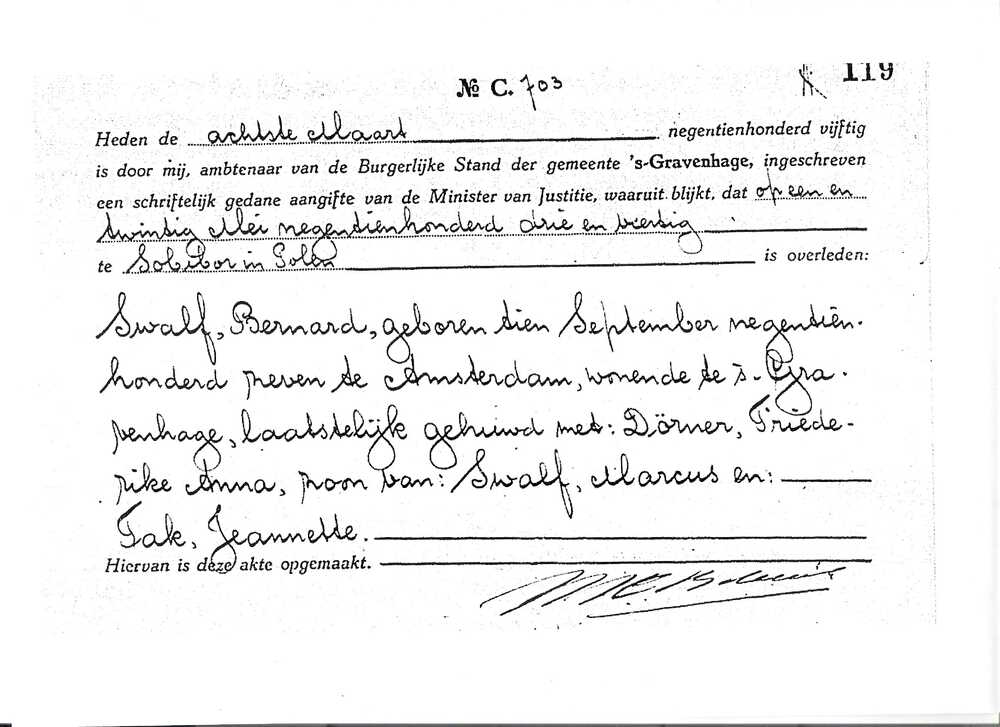 119
№ C. 703
Heden de achtste Maart negentienhonderd vijftig
is door mij, ambtenaar van de Burgerlijke Stand der gemeente 's-Gravenhage, ingeschreven
een schriftelijk gedane aangifte van de Minister van Justitie, waaruit blijkt, dat op een en
twintig Mei negentienhonderd drie en veertig
te Sobibor in Polen is overleden:
Swalf, Bernard, geboren tien September negentien-
honderd zeven te Amsterdam, wonende te 's-Gra-
venhage, laatstelijk gehuwd met: Dörner, Friede-
rike Anna, zoon van: Swalf, Marcus en:
Tak, Jeannette.
Hiervan is deze akte opgemaakt.